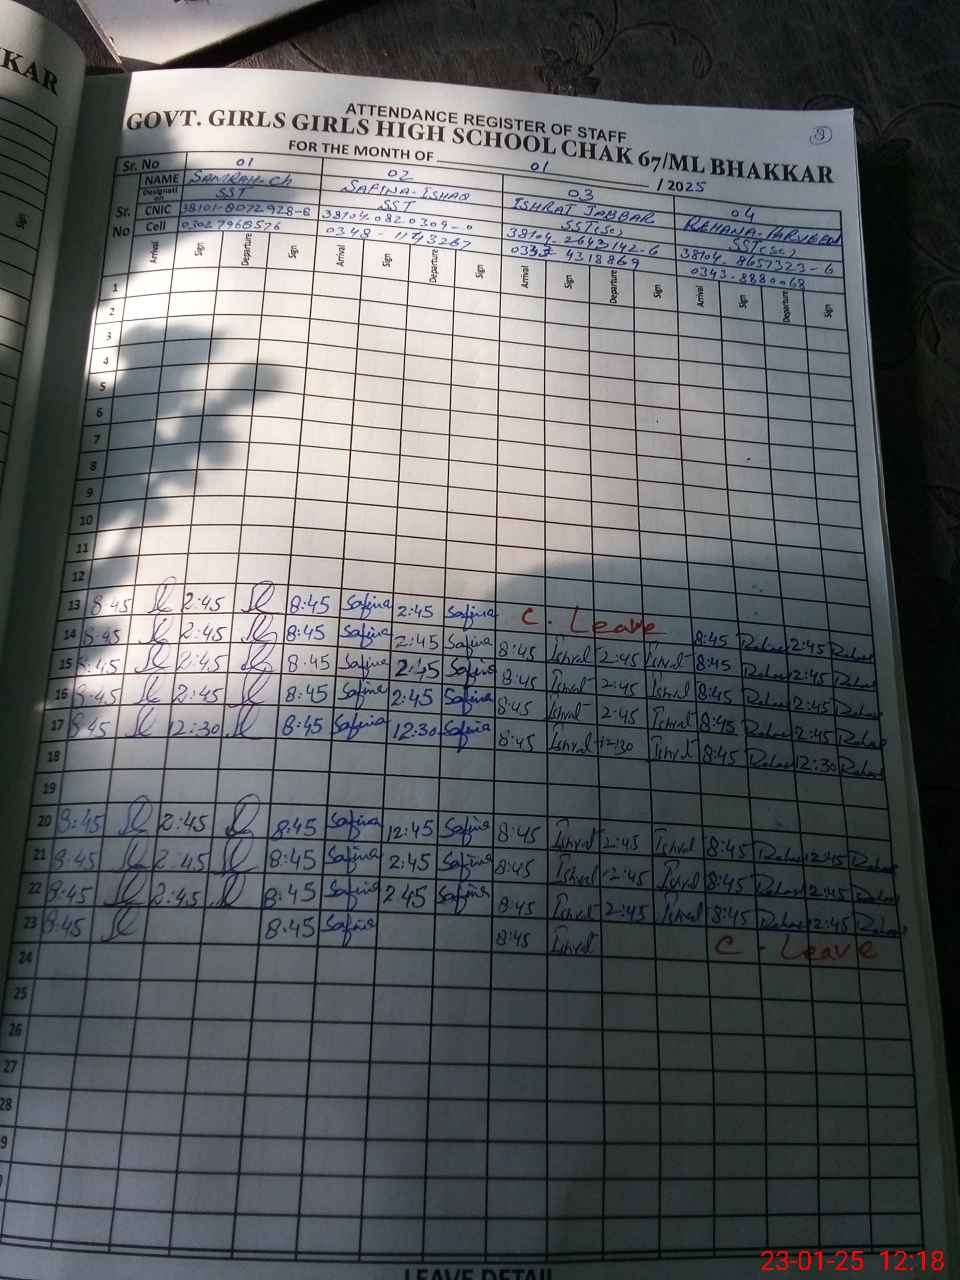 KKAR
ATTENDANCE REGISTER OF STAFF
9
GOVT. GIRLS GIRLS HIGH SCHOOL CHAK 67/ML BHAKKAR
FOR THE MONTH OF 01 / 2025
Sr. No 01 02 03 04
NAME SAMRAH-Ch SAFINA-ISHAQ ISHRAT JABBAR REHANA-PARVEEN
Designation SST SST SST(Sc) SST(Sc)
Sr. No
CNIC 38101-8072928-6 38104-0820309-0 38104-2643142-6 38104-8657323-6
Cell 03027968576 0348-1143267 4318869 0343-8880068
Arrival Sign Departure Sign Arrival Sign Departure Sign Arrival Sign Departure Sign Arrival Sign Departure Sign
1
2
3
4
5
6
7
8
9
10
11
12
13 8:45 2:45 8:45 Safina 2:45 Safina C. Leave 8:45 Rehana 2:45 Rehana
14 8:45 2:45 8:45 Safina 2:45 Safina 8:45 Ishrat 2:45 Ishrat 8:45 Rehana 2:45 Rehana
15 8:45 2:45 8:45 Safina 2:45 Safina 8:45 Ishrat 2:45 Ishrat 8:45 Rehana 2:45 Rehana
16 8:45 2:45 8:45 Safina 2:45 Safina 8:45 Ishrat 2:45 Ishrat 8:45 Rehana 2:45 Rehana
17 8:45 12:30 8:45 Safina 12:30 Safina 8:45 Ishrat 12:30 Ishrat 8:45 Rehana 12:30 Rehana
18
19
20 8:45 2:45 8:45 Safina 12:45 Safina 8:45 Ishrat 2:45 Ishrat 8:45 Rehana 2:45 Rehana
21 8:45 2:45 8:45 Safina 2:45 Safina 8:45 Ishrat 2:45 Ishrat 8:45 Rehana 2:45 Rehana
22 8:45 2:45 8:45 Safina 2:45 Safina 8:45 Ishrat 2:45 Ishrat 8:45 Rehana 2:45 Rehana
23 8:45 8:45 Safina 8:45 Ishrat C - Leave
24
25
26
27
28
9
LEAVE DETAIL
23-01-25 12:18